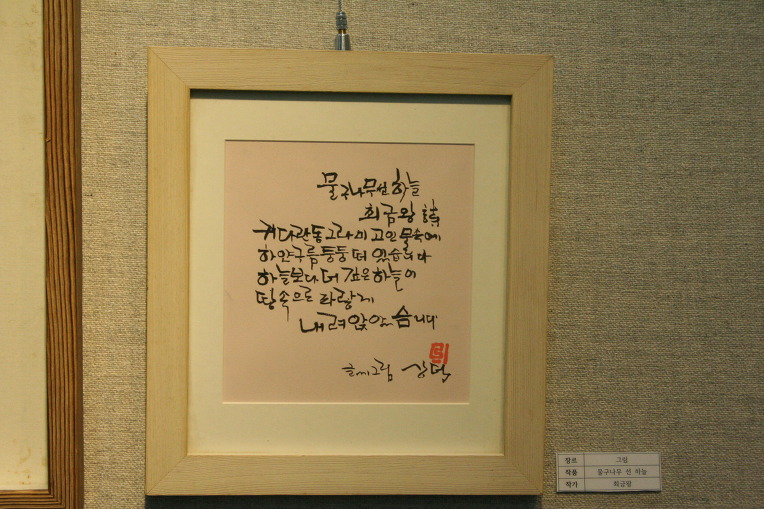 물구나무선 하늘
최금왕 詩
커다란 동그라미 고인 물속에
하얀구름 둥둥 떠 있습니다
하늘보다 더 깊은 하늘이
땅속으로 파랗게
내려앉았습니다
글씨그림 상덕
장르 그림
작품 물구나무 선 하늘
작가 최금왕